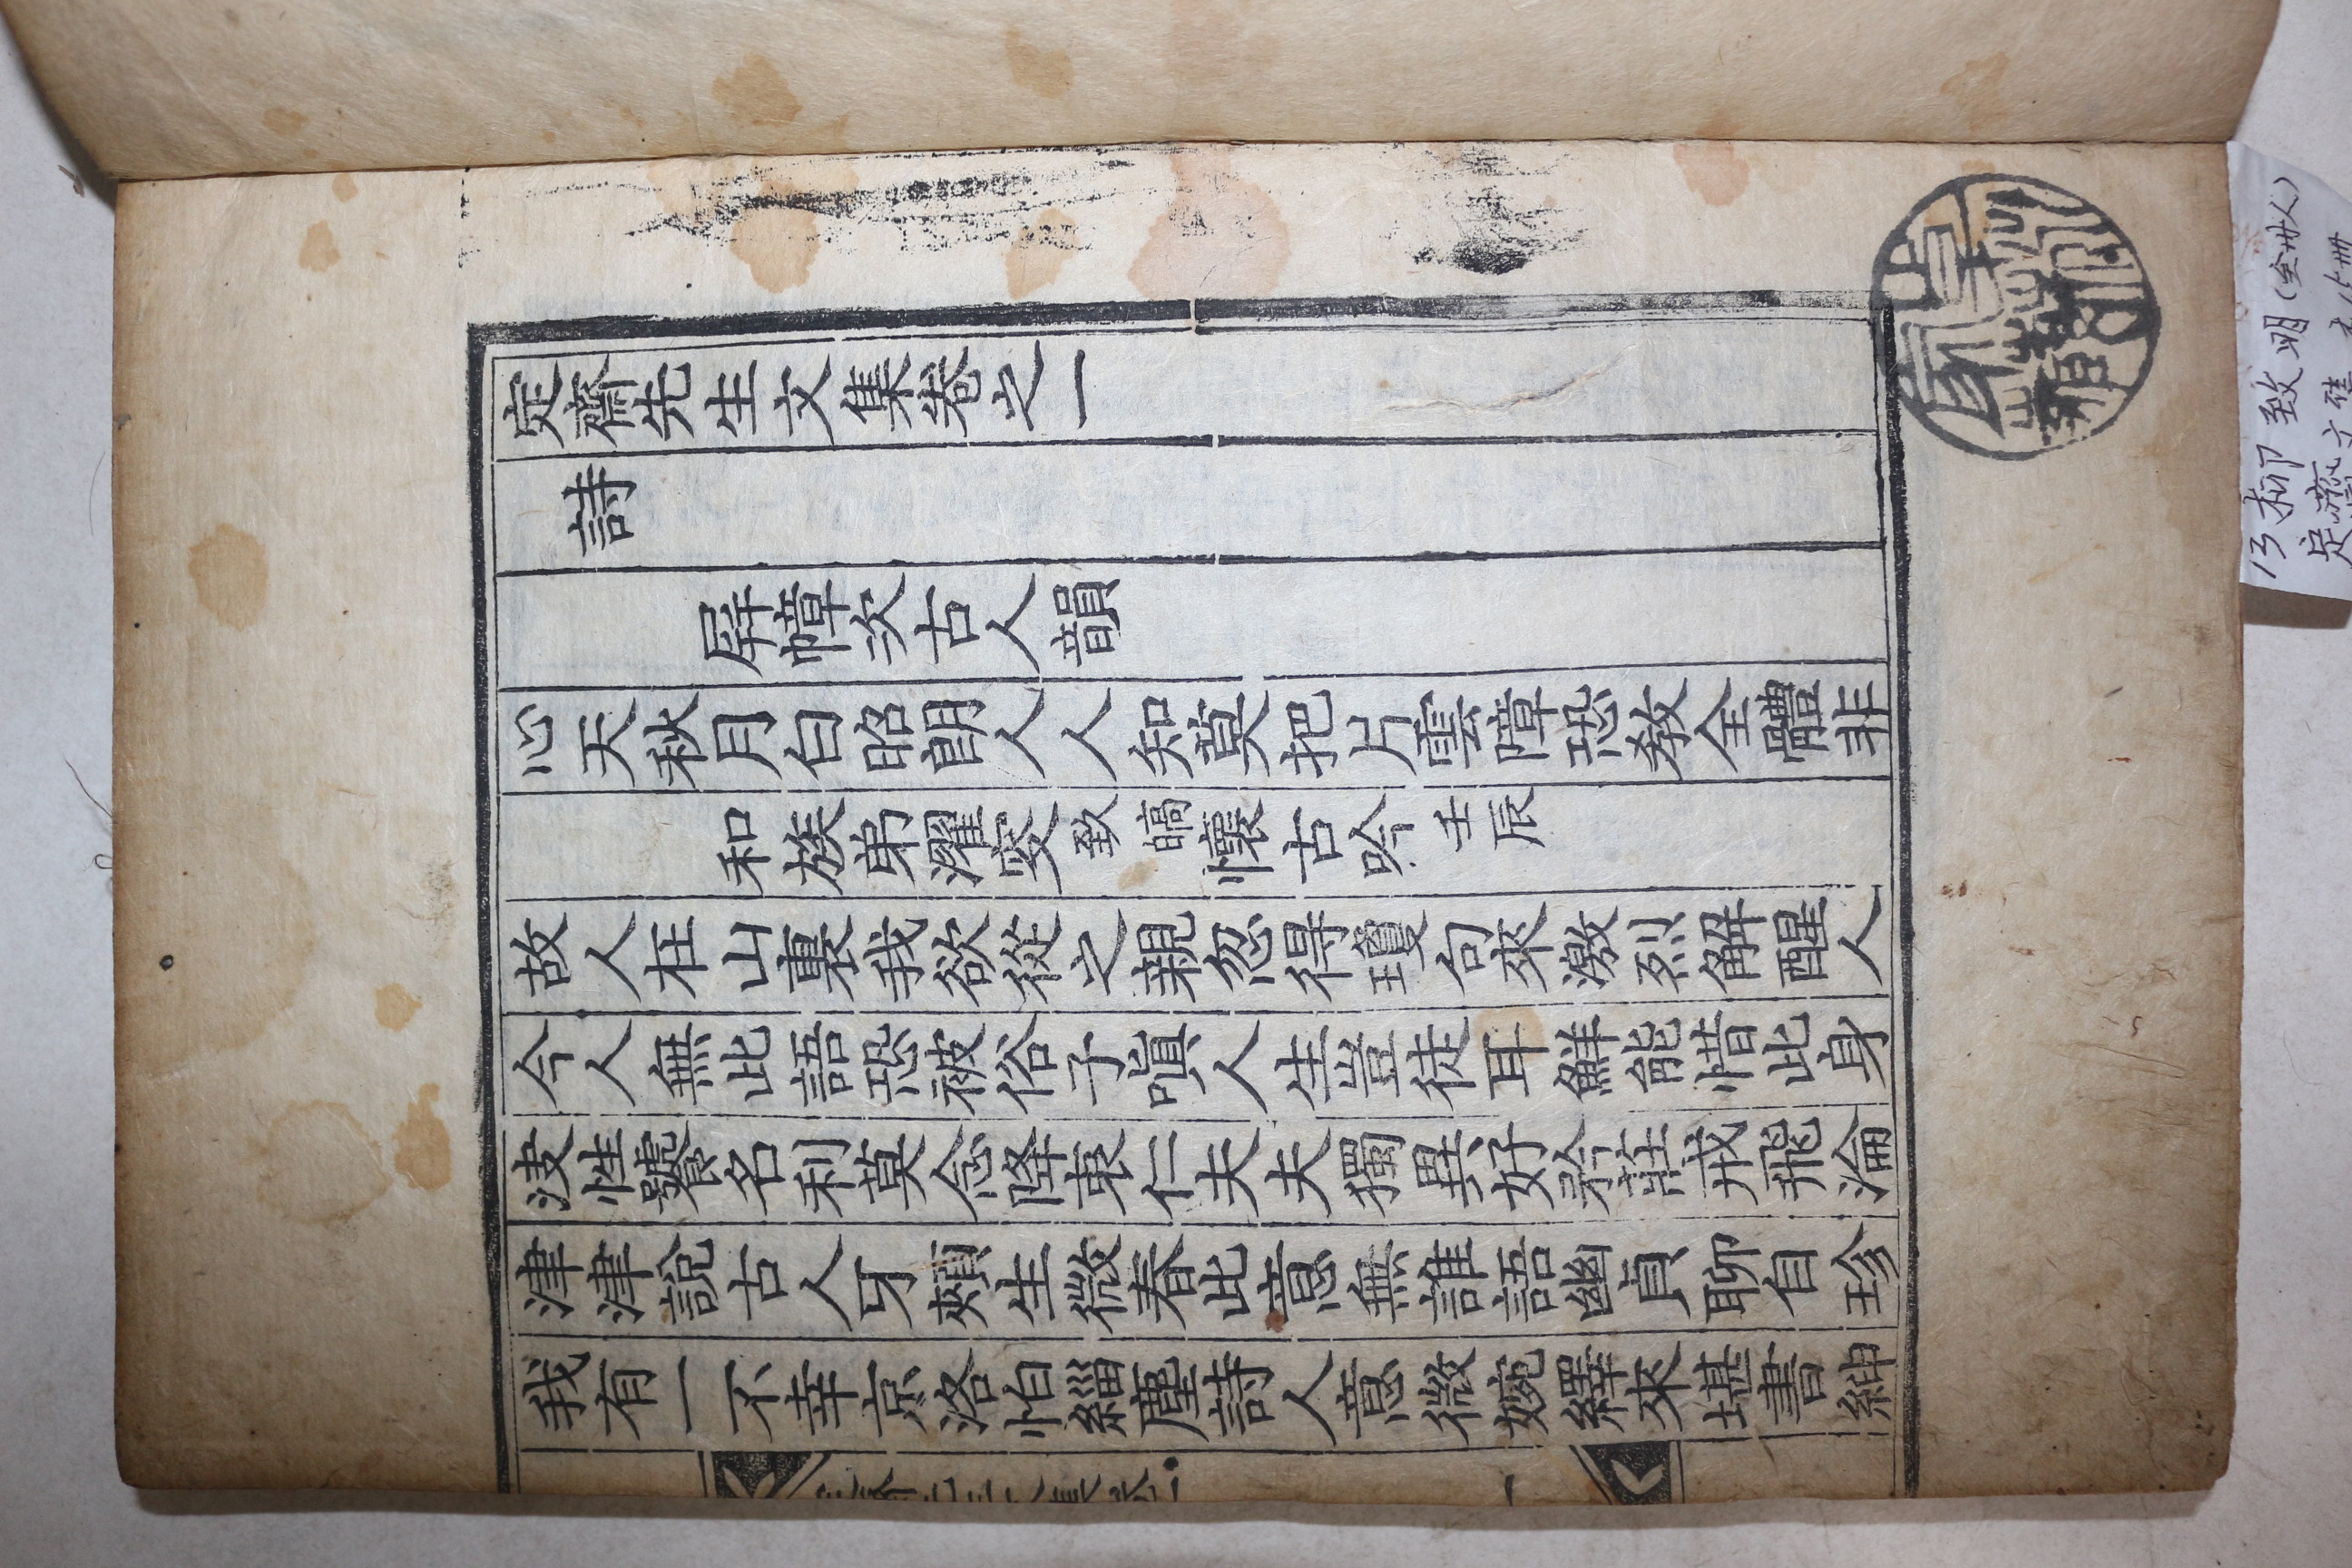 定齋先生文集卷之一
詩
屏幛次古人韻
心天秋月白昭朗人人知莫把片雲障恐教全體非
和族弟濯叟致皜懷古吟壬辰
故人在山裏我欲從之親忽得瓊句來激烈解醒人
今人無此語恐被俗子嗔人生豈徒耳鮮能惜此身
悽性饕名利莫念降衷仁夫夫獨異好矜莊戒飛淪
津津說古人牙頰生微春此意無誰語幽貞聊自珍
我有一不幸京洛怕緇塵詩人意微婉繹來堪書紳
13 柳致明(全州人)